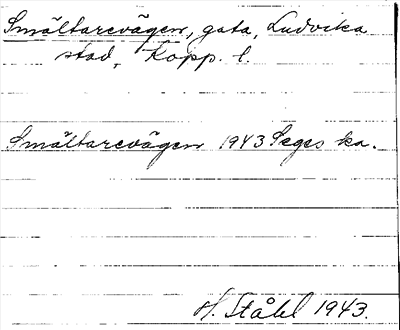 Smältarevägen, gata, Ludvika
stad, Kopp. l.
Smältarevägen 1943 Seges ka.
H. Ståhl 1943.